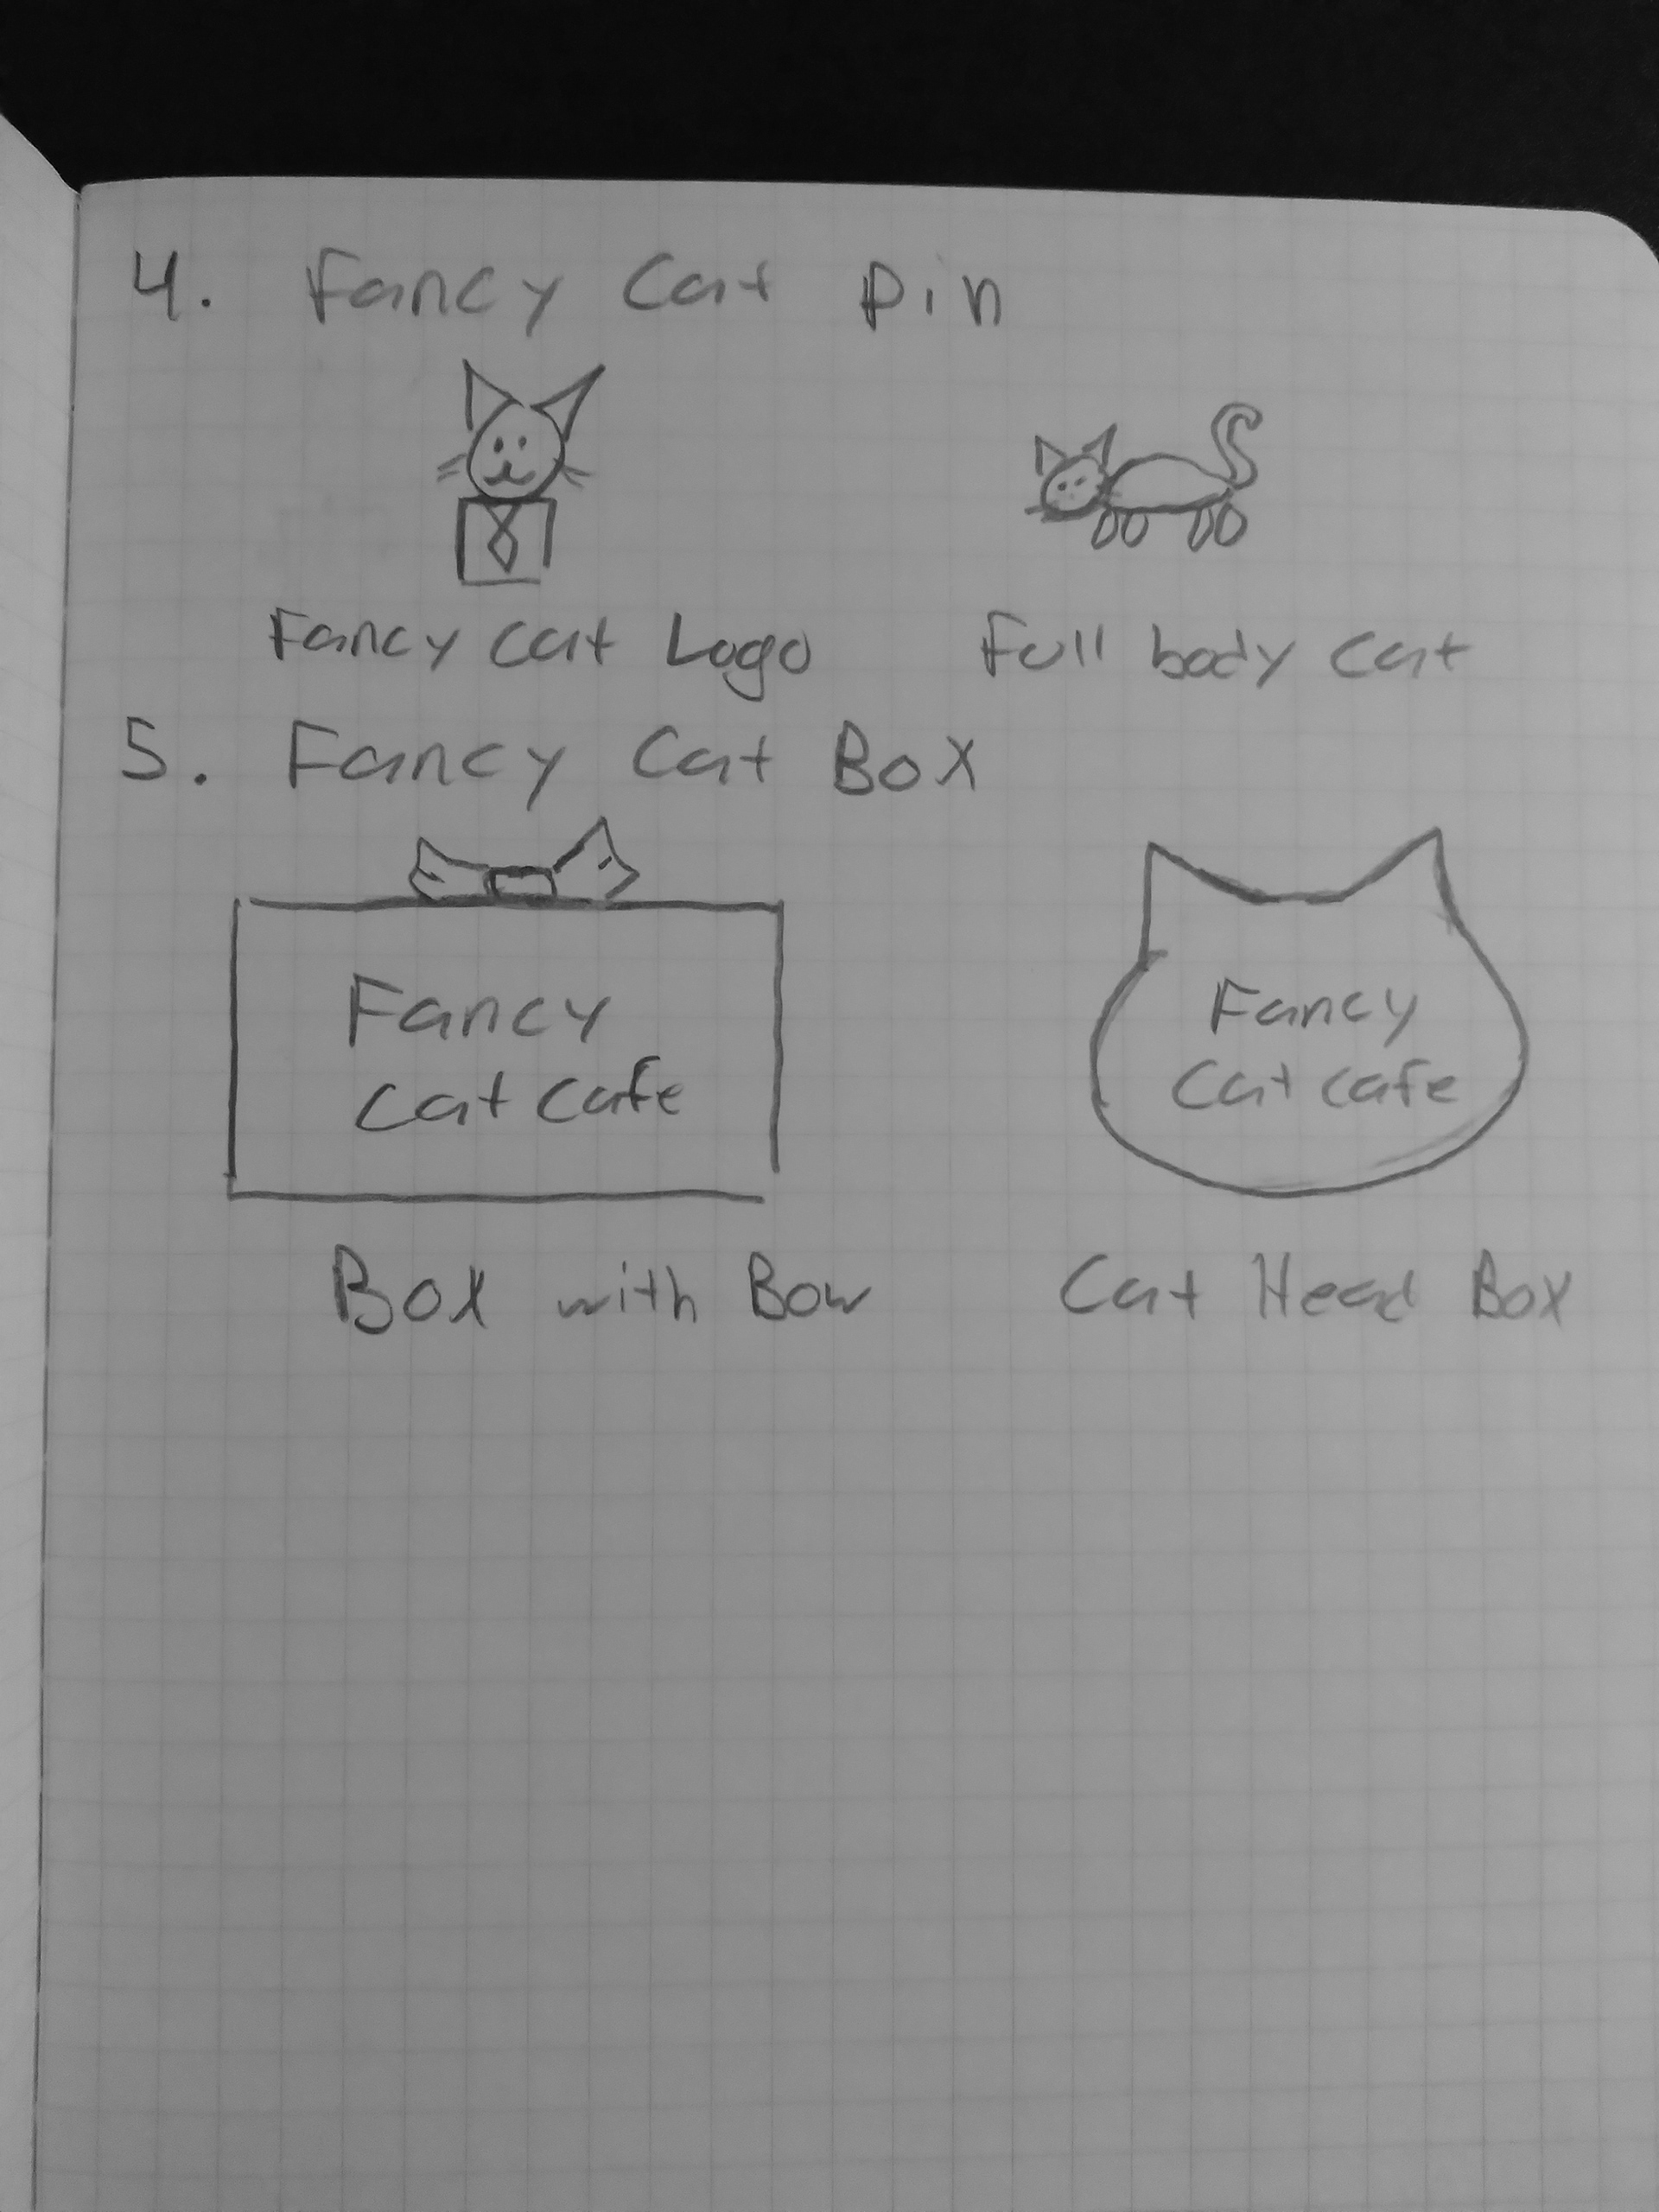 4. Fancy Cat Pin
Fancy Cat Logo
Full body Cat
5. Fancy Cat Box
Fancy
Cat Cafe
Fancy
Cat Cafe
Box with Bow
Cat Head Box